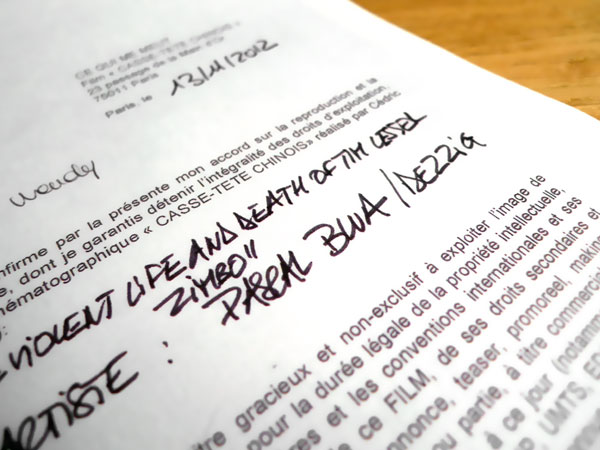 CE QUI ME MEUT
Film « CASSE-TETE CHINOIS »
23 passage de la Main d'Or
75011 Paris
Paris, le 13/11/2012
wendy
nfirme par la présente mon accord sur la reproduction et la
e, dont je garantis détenir l'intégralité des droits d'exploitation,
nématographique « CASSE-TETE CHINOIS» réalisé par Cédric
VIOLENT LIFE AND DEATH OF TIM LESTER
ZIMBO"
ARTISTE : PASCAL BWA / DEZZIG
tre gracieux et non-exclusif à exploiter l'image de
pour la durée légale de la propriété intellectuelle,
res et les conventions internationales et ses
e ce FILM, de ses droits secondaires et
nnonce, teaser, promoreel, making
ou partie, à titre commercial
à ce jour (notamm
UMTS, ED